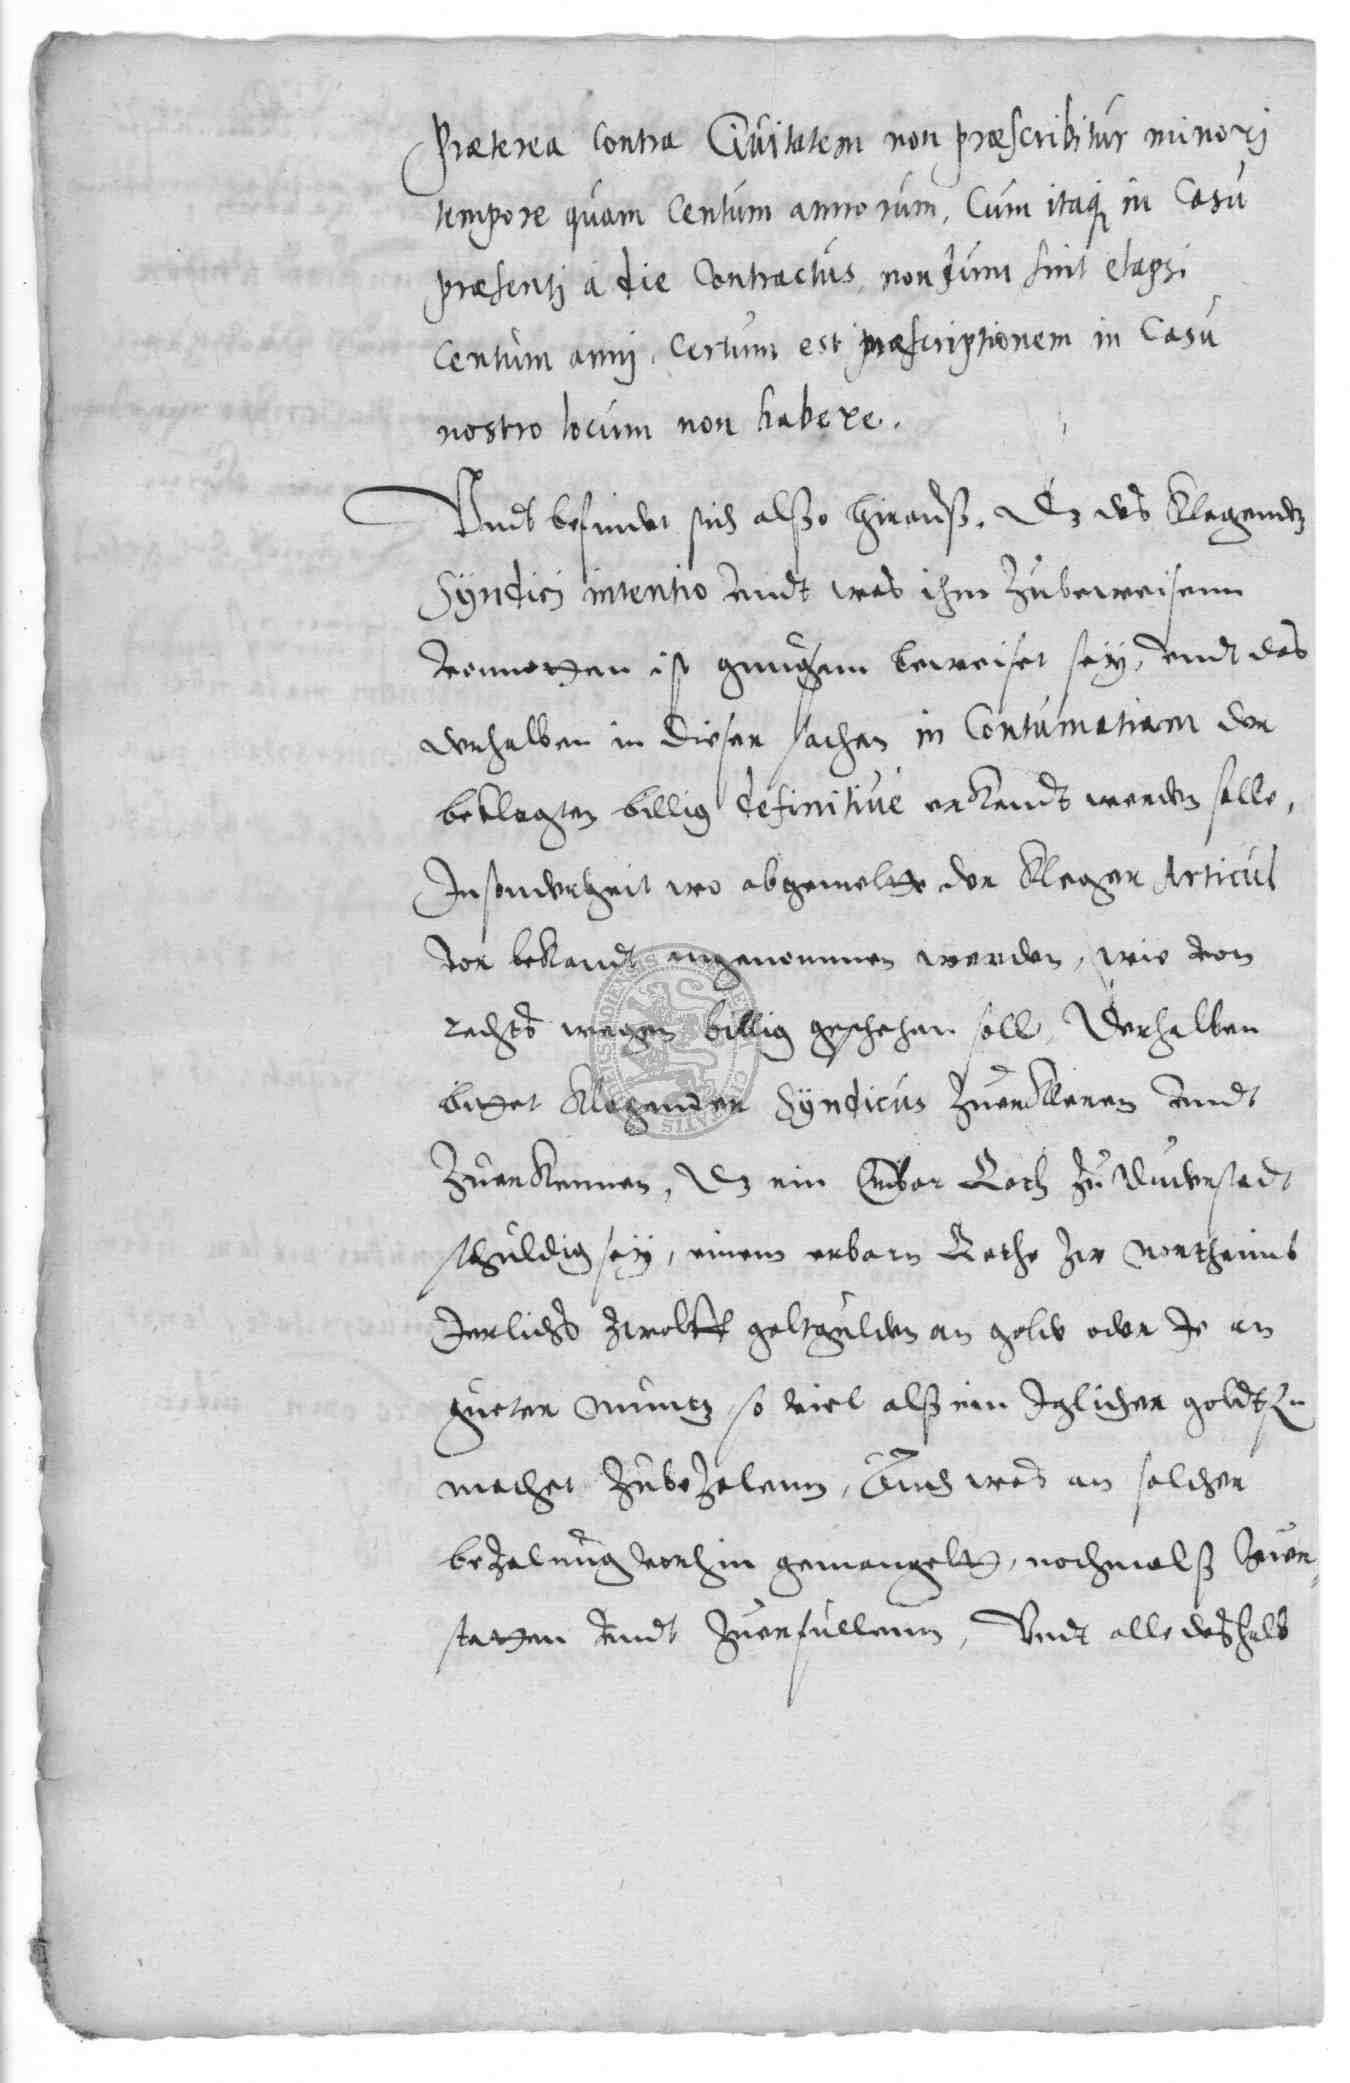 Præterea contra Civitatem non præscribitur minorj
tempore quam centum annorum, Cum itaq; in Casu
præsentj à die Contractus, nondum sint elapsi
centum annj, Certum est præscriptionem in Casu
nostro locum non habere.
Undt befindet sich alsso hirauß, Dz des Klagendenn
Syndicj intentio undt was ihm zubeweisenn
vonnotten ist gnugsam beweiset sey, undt das
derhalben in dieser sachen in Contumatiam der
beklagten billig definitivè erkandt werden solle,
Insonderheit wo abgemelte der Kleger Articul
vor bekandt angenommen werden, wie von
rechts wegen billig geschehen soll, Derhalben
bittet Klagender Syndicus zuerkleren undt
zuerkennen, Dz ein Erbar Rath zu Duderstadt
schuldig sey, einem erbarn Rathe zw northeimb
Jerlichs zwolff goltgulden an golde oder Je an
guter Muntz so viel alß ein Jglicher goldtfl
machet zubezalenn, Auch was an solcher
bezalung vorhin gemangelt, nochmalß zuer-
statten undt zuerfullenn, Undt alle deßhalb
SIGILLUM CIVITATIS